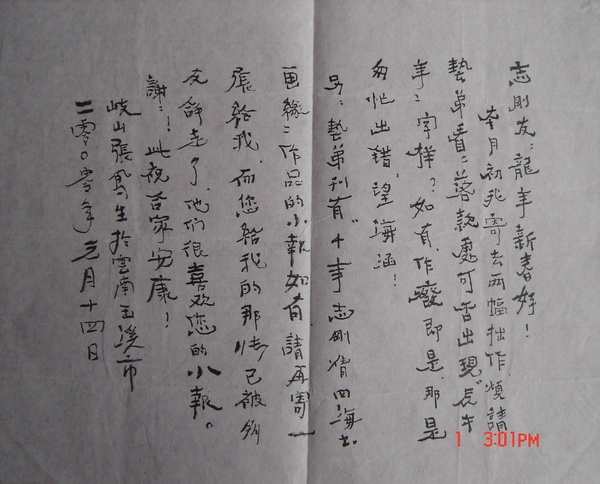 志刚友:龍年新春好!
本月初我寄去两幅拙作,煩請
藝弟看:落款處可否出現"辰年
年"字樣?如有,作廢即是,那是
匆忙出錯,望海涵!
另:藝弟刊有"十年志刚情四海书
画緣"作品的小報如有,請再寄一
張給我,而您給我的那张已被朋
友争走了,他们很喜欢您的小報。
謝:!此祝合家安康!
岐山張鳳生於雲南玉溪市
二零〇零年元月十四日
1 3:01PM